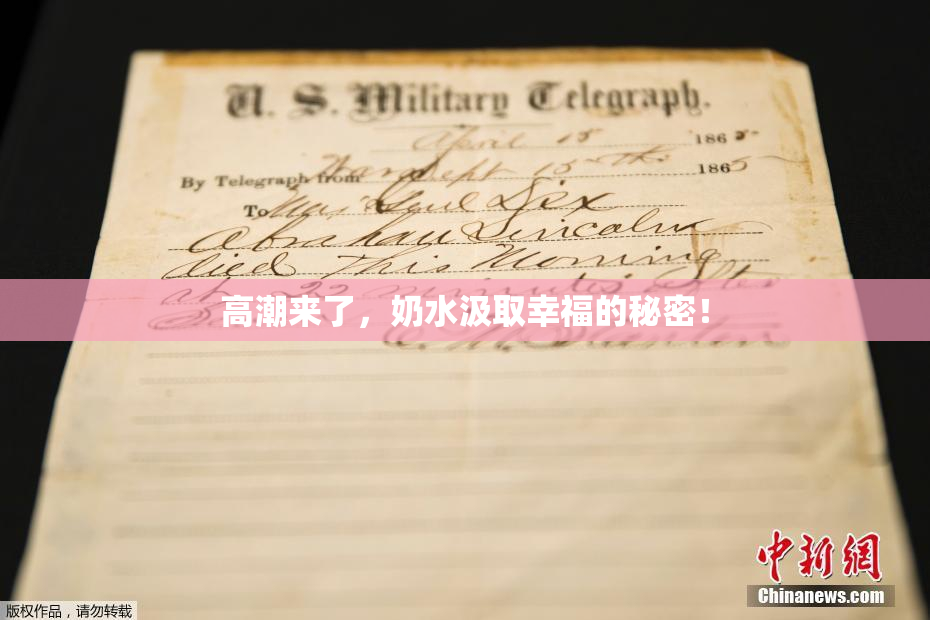 U. S. Military Telegraph.
April 15 1865
By Telegraph from War Dept 15th 1865
To Maj Genl Dix
Abraham Lincoln
died This Morning
at 22 minutes after
高潮来了，奶水汲取幸福的秘密！
中新网
Chinanews.com
版权作品，请勿转载